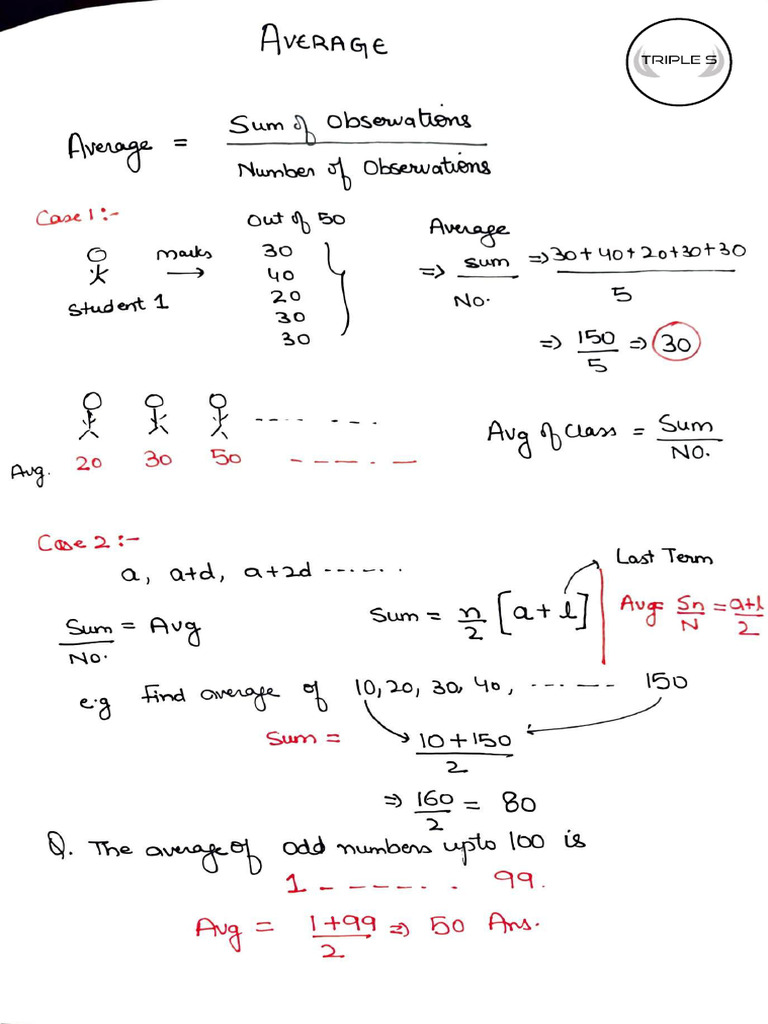 AVERAGE
TRIPLE S
Average = Sum of Observations / Number of Observations
Case 1 :-
Student 1
marks →
Out of 50
30
40
20
30
30
Average
=> Sum / No. => 30 + 40 + 20 + 30 + 30 / 5
=> 150 / 5 => 30
---- ---
Avg. 20 30 50 - - - - - -
Avg of Class = Sum / No.
Case 2 :-
a, a+d, a+2d ------.
Sum / No. = Avg
Sum = n/2 [a + l]
Last Term
Avg = Sn / N = a+l / 2
e.g find average of 10, 20, 30, 40, ------- 150
Sum = 10 + 150 / 2
=> 160 / 2 = 80
Q. The average of odd numbers upto 100 is
1 - - - - - . . 99.
Avg = 1+99 / 2 => 50 Ans.